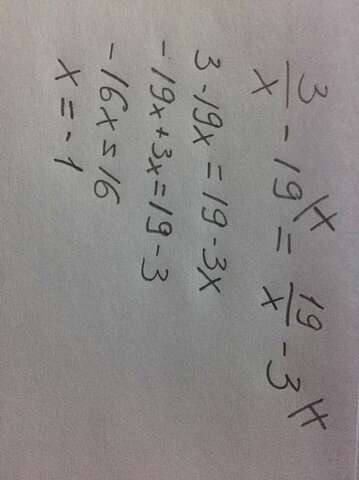 3/x - 19 \x = 19/x - 3 \x
3 - 19x = 19 - 3x
-19x + 3x = 19 - 3
-16x = 16
x = -1